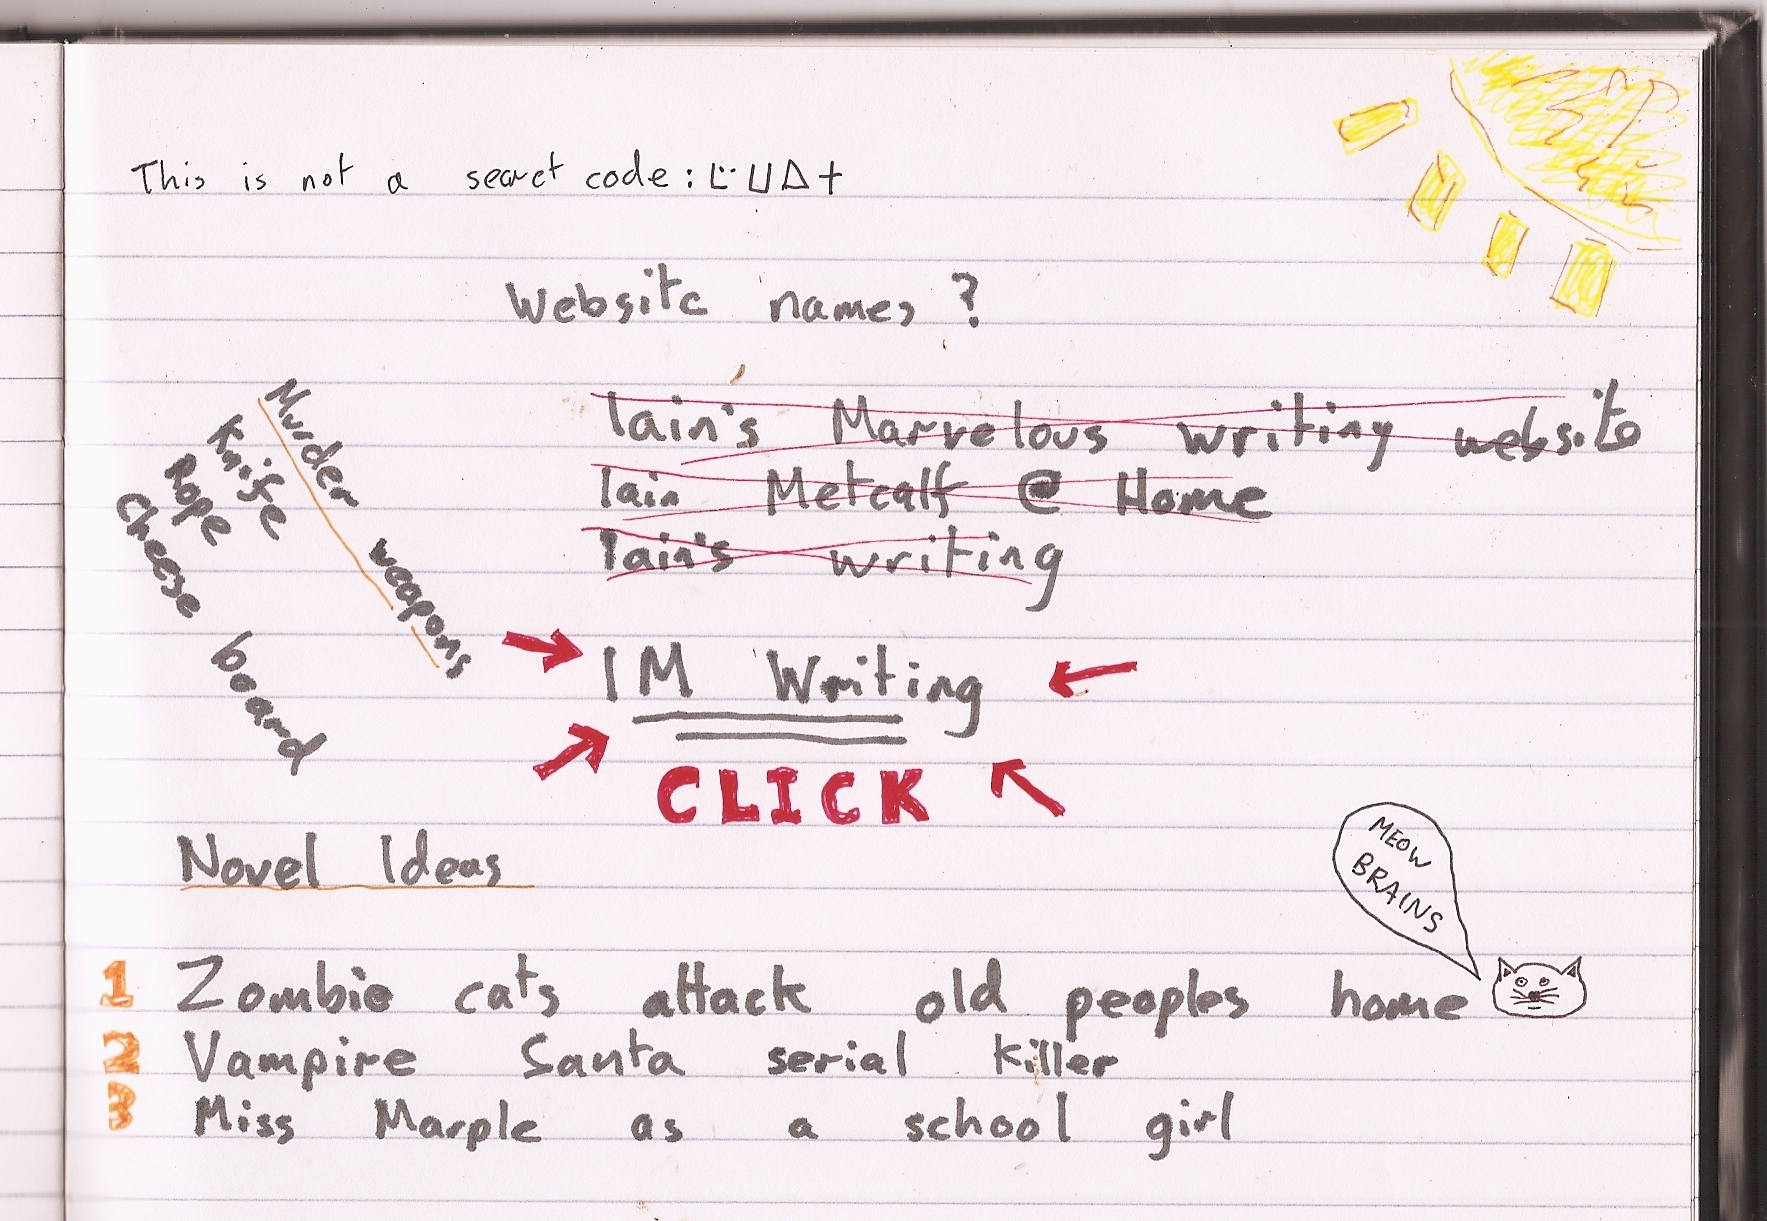 This is not a secret code: L¨UΔ+
Website names?
Iain's Marvelous writing website
Iain Metcalf @ Home
Iain's writing
Murder weapons
Knife
Rope
Cheese board
IM Writing
CLICK
Novel Ideas
MEOW
BRAINS
1 Zombie cats attack old peoples home
2 Vampire Santa serial killer
3 Miss Marple as a school girl